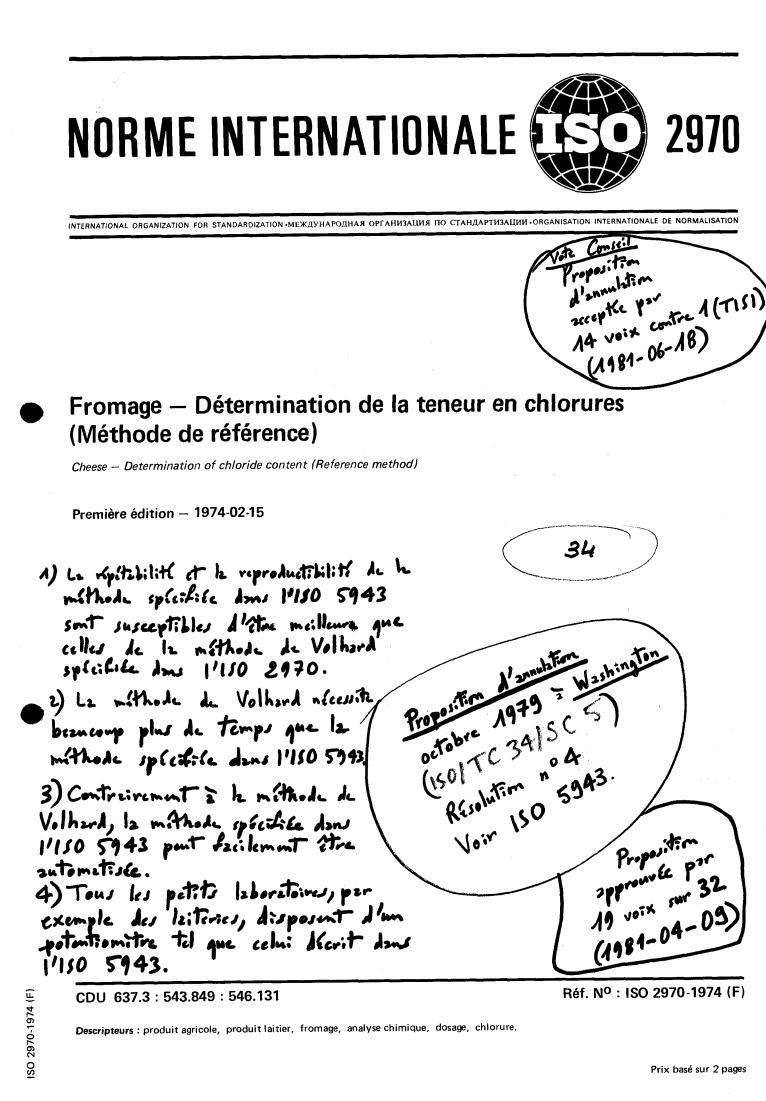 NORME INTERNATIONALE ISO 2970
INTERNATIONAL ORGANIZATION FOR STANDARDIZATION •МЕЖДУНАРОДНАЯ ОРГАНИЗАЦИЯ ПО СТАНДАРТИЗАЦИИ•ORGANISATION INTERNATIONALE DE NORMALISATION
Vote Conseil
Proposition
d'annulation
acceptée par
14 voix contre 1 (TISI)
(1981-06-18)
Fromage — Détermination de la teneur en chlorures
(Méthode de référence)
Cheese — Determination of chloride content (Reference method)
Première édition — 1974-02-15
34
1) La répétabilité et la reproductibilité de la
méthode spécifiée dans l'ISO 5943
sont susceptibles d'être meilleures que
celles de la méthode de Volhard
spécifiée dans l'ISO 2970.
2) La méthode de Volhard nécessite
beaucoup plus de temps que la
méthode spécifiée dans l'ISO 5943
3) Contrairement à la méthode de
Volhard, la méthode spécifiée dans
l'ISO 5943 peut facilement être
automatisée.
4) Tous les petits laboratoires, par
exemple des laiteries, disposent d'un
potentiomètre tel que celui décrit dans
l'ISO 5943.
Proposition d'annulation
octobre 1979 à Washington
(ISO/TC 34/SC 5)
Résolution n° 4
Voir ISO 5943.
Proposition
approuvée par
19 voix sur 32
(1981-04-09)
CDU 637.3 : 543.849 : 546.131
Réf. Nº : ISO 2970-1974 (F)
Descripteurs : produit agricole, produit laitier, fromage, analyse chimique, dosage, chlorure.
Prix basé sur 2 pages
ISO 2970-1974 (F)